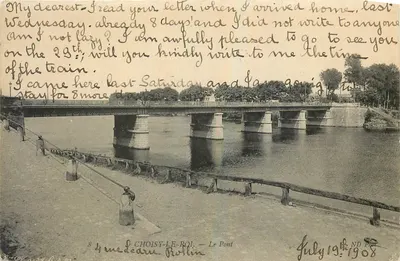 My dearest - I read your letter when I arrived home, last
Wednesday, already 8 days and I did not write to anyone
am I not lazy? I am awfully pleased to go to see you
on the 29th; will you kindly write to me the time
of the train.
I came here last Saturday and I am going to
stay for 8 more
CHOISY-LE-ROI. - Le Pont
ND Phot.
4 me Ledru Rollin
July 19th 1908